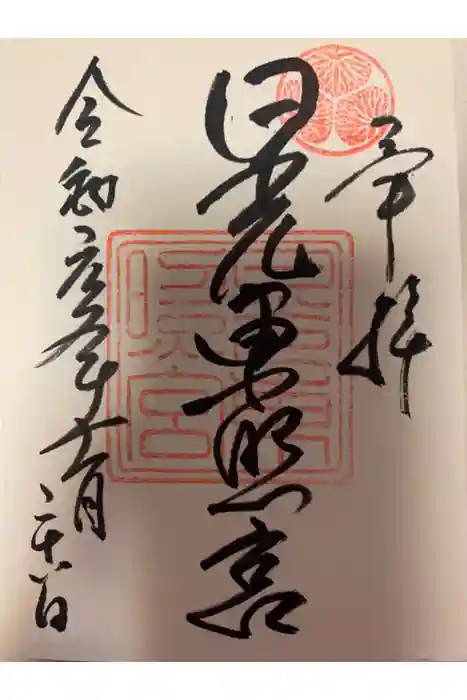 奉拝
日光東照宮
令和年十一月二十八日